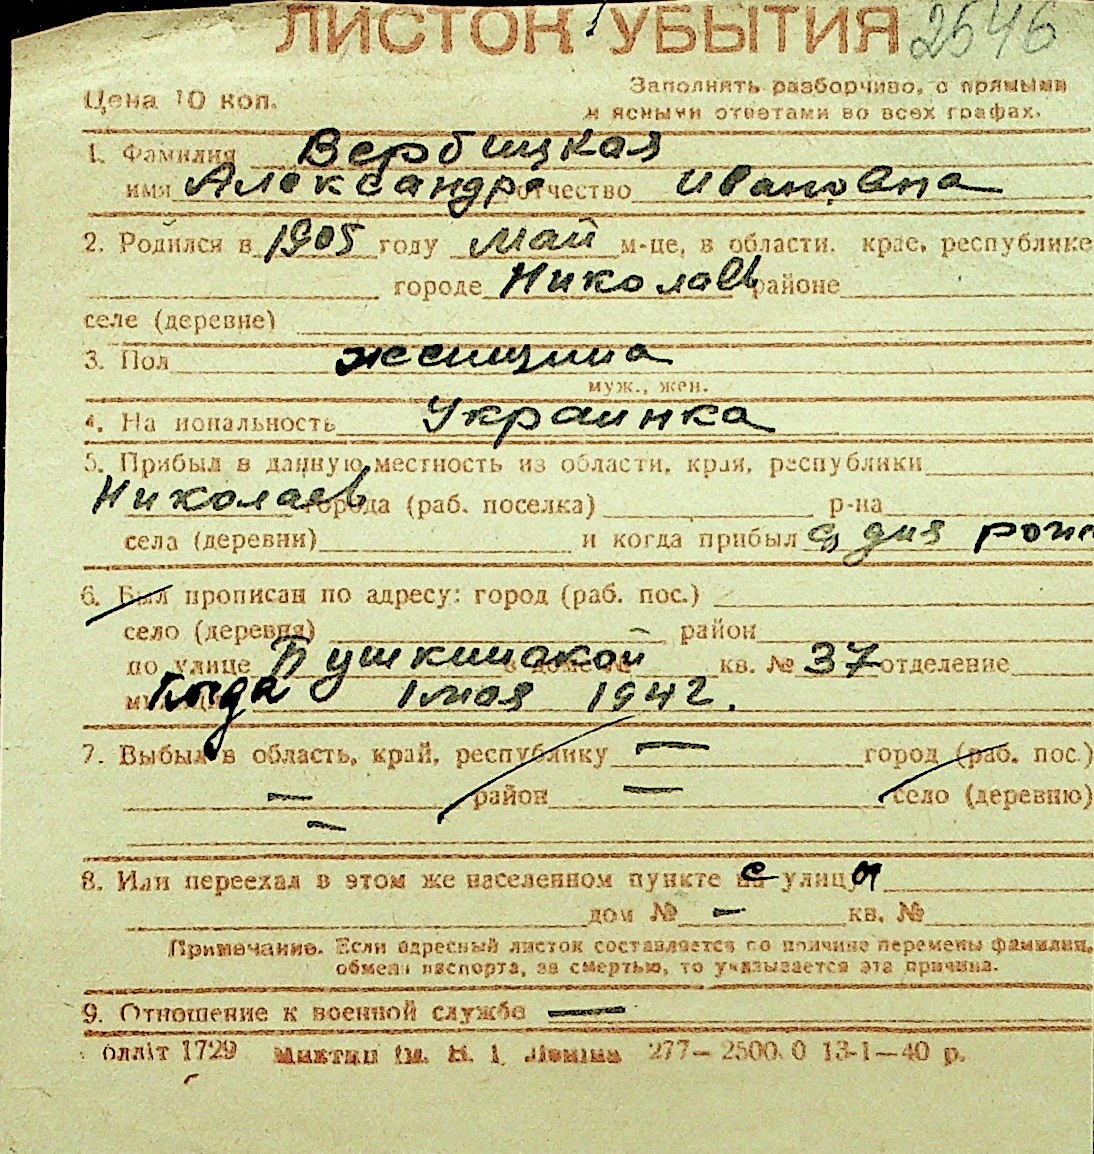 ЛИСТОК УБЫТИЯ 2546
Цена 10 коп.
Заполнять разборчиво, с прямыми
и ясными ответами во всех графах.
1. Фамилия Вербицкая
имя Александра отчество Ивановна
2. Родился в 1905 году май м-це, в области, крае, республике
городе Николаев районе
селе (деревне)
3. Пол женщина
муж., жен.
4. Национальность Украинка
5. Прибыл в данную местность из области, края, республики
Николаев города (раб. поселка) р-на
села (деревни) и когда прибыл со дня рож
6. Был прописан по адресу: город (раб. пос.)
село (деревня) район
по улице Пушкинской в доме № кв. № 37 отделение
Когда 1 мая 1942.
7. Выбыл в область, край, республику — город (раб. пос.)
— район — село (деревню)
—
8. Или переехал в этом же населенном пункте с улицы
дом № — кв. №
Примечание. Если адресный листок составляется по причине перемены фамилии,
обмена паспорта, за смертью, то указывается эта причина.
9. Отношение к военной службе —
блліт 1729 277—2500.0 13-1—40 р.